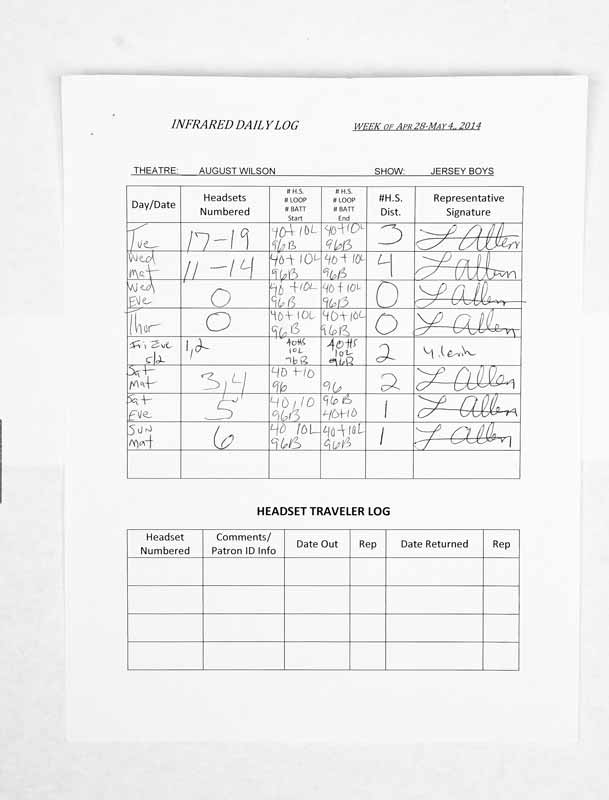 INFRARED DAILY LOG WEEK OF APR 28-MAY 4., 2014
THEATRE: AUGUST WILSON SHOW: JERSEY BOYS
Day/Date Headsets Numbered # H.S. # LOOP # BATT Start # H.S. # LOOP # BATT End #H.S. Dist. Representative Signature
Tue 17-19 40+10L 96B 40+10L 96B 3 L Allen
Wed mat 11-14 40+10L 96B 40+10L 96B 4 L Allen
Wed Eve 0 40+10L 96B 40+10L 96B 0 L Allen
Thur 0 40+10L 96B 40+10L 96B 0 L Allen
Fri Eve 5/2 1,2 40HS 10L 96B 40HS 10L 96B 2
Sat Mat 3,4 40+10 96 96 2 L Allen
Sat Eve 5 40,10 96B 96B 40+10 1 L Allen
SUN mat 6 40 10L 96B 40+10L 96B 1 L Allen
HEADSET TRAVELER LOG
Headset Numbered Comments/ Patron ID Info Date Out Rep Date Returned Rep